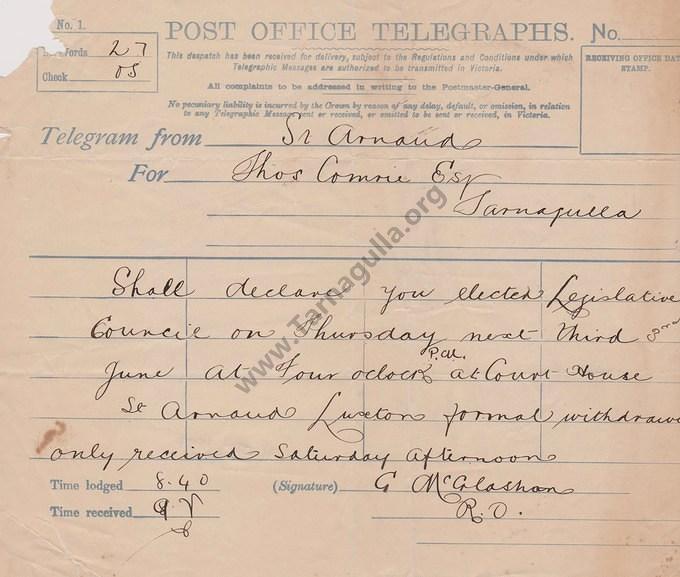 No. 1.
POST OFFICE TELEGRAPHS.
No.
Words 27
Check 05
This despatch has been received for delivery, subject to the Regulations and Conditions under which
Telegraphic Messages are authorized to be transmitted in Victoria.
All complaints to be addressed in writing to the Postmaster-General.
No pecuniary liability is incurred by the Crown by reason of any delay, default, or omission, in relation
to any Telegraphic Message sent or received, or omitted to be sent or received, in Victoria.
RECEIVING OFFICE DAT
STAMP.
Telegram from St Arnaud
For Thos Comrie Esq
Tarnagulla
Shall declare you elected Legislative
Council on Thursday next third 3rd
June at Four oclock P.M. at Court House
St Arnaud Luxton formal withdrawe
only received Saturday afternoon
Time lodged 8.40
(Signature) G McGlashan
Time received
R.O.
www.Tarnagulla.org